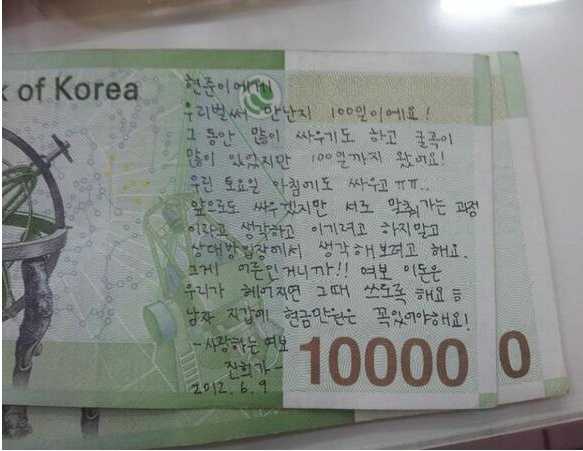 k of Korea
현준이에게
우리벌써 만난지 100일이에요!
그 동안 많이 싸우기도 하고 굴곡이
많이 있었지만 100일까지 왔어요!
우린 토요일 아침에도 싸우고 ㅠㅠ..
앞으로도 싸우겠지만 서로 맞춰가는 과정
이라고 생각하고 이기려고 하지말고
상대방입장에서 생각해보려고 해요.
그게 어른인거니까!! 여보 이돈은
우리가 헤어지면 그때 쓰도록 해요
남자 지갑에 현금만원은 꼭있어야해요!
-사랑하는 여보
진희가-
2012. 6. 9
10000
0